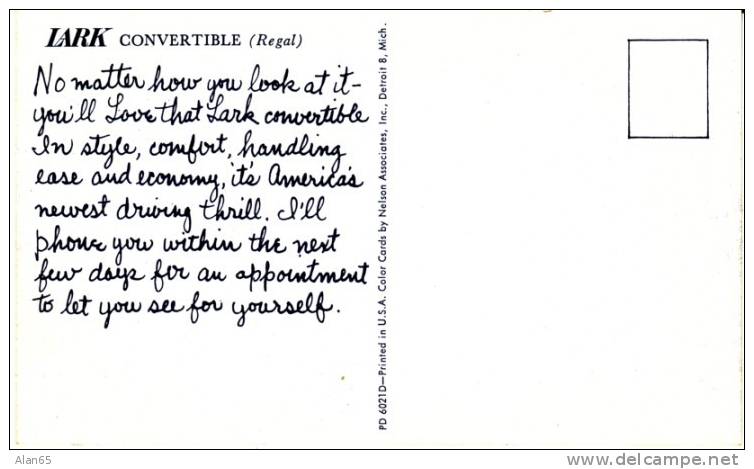 LARK CONVERTIBLE (Regal)
No matter how you look at it-
you'll Love that Lark convertible
In style, comfort, handling
ease and economy, it's America's
newest driving thrill. I'll
phone you within the next
few days for an appointment
to let you see for yourself.
PD 6021D—Printed in U.S.A. Color Cards by Nelson Associates, Inc., Detroit 8, Mich.
Alan65
www.delcampe.net